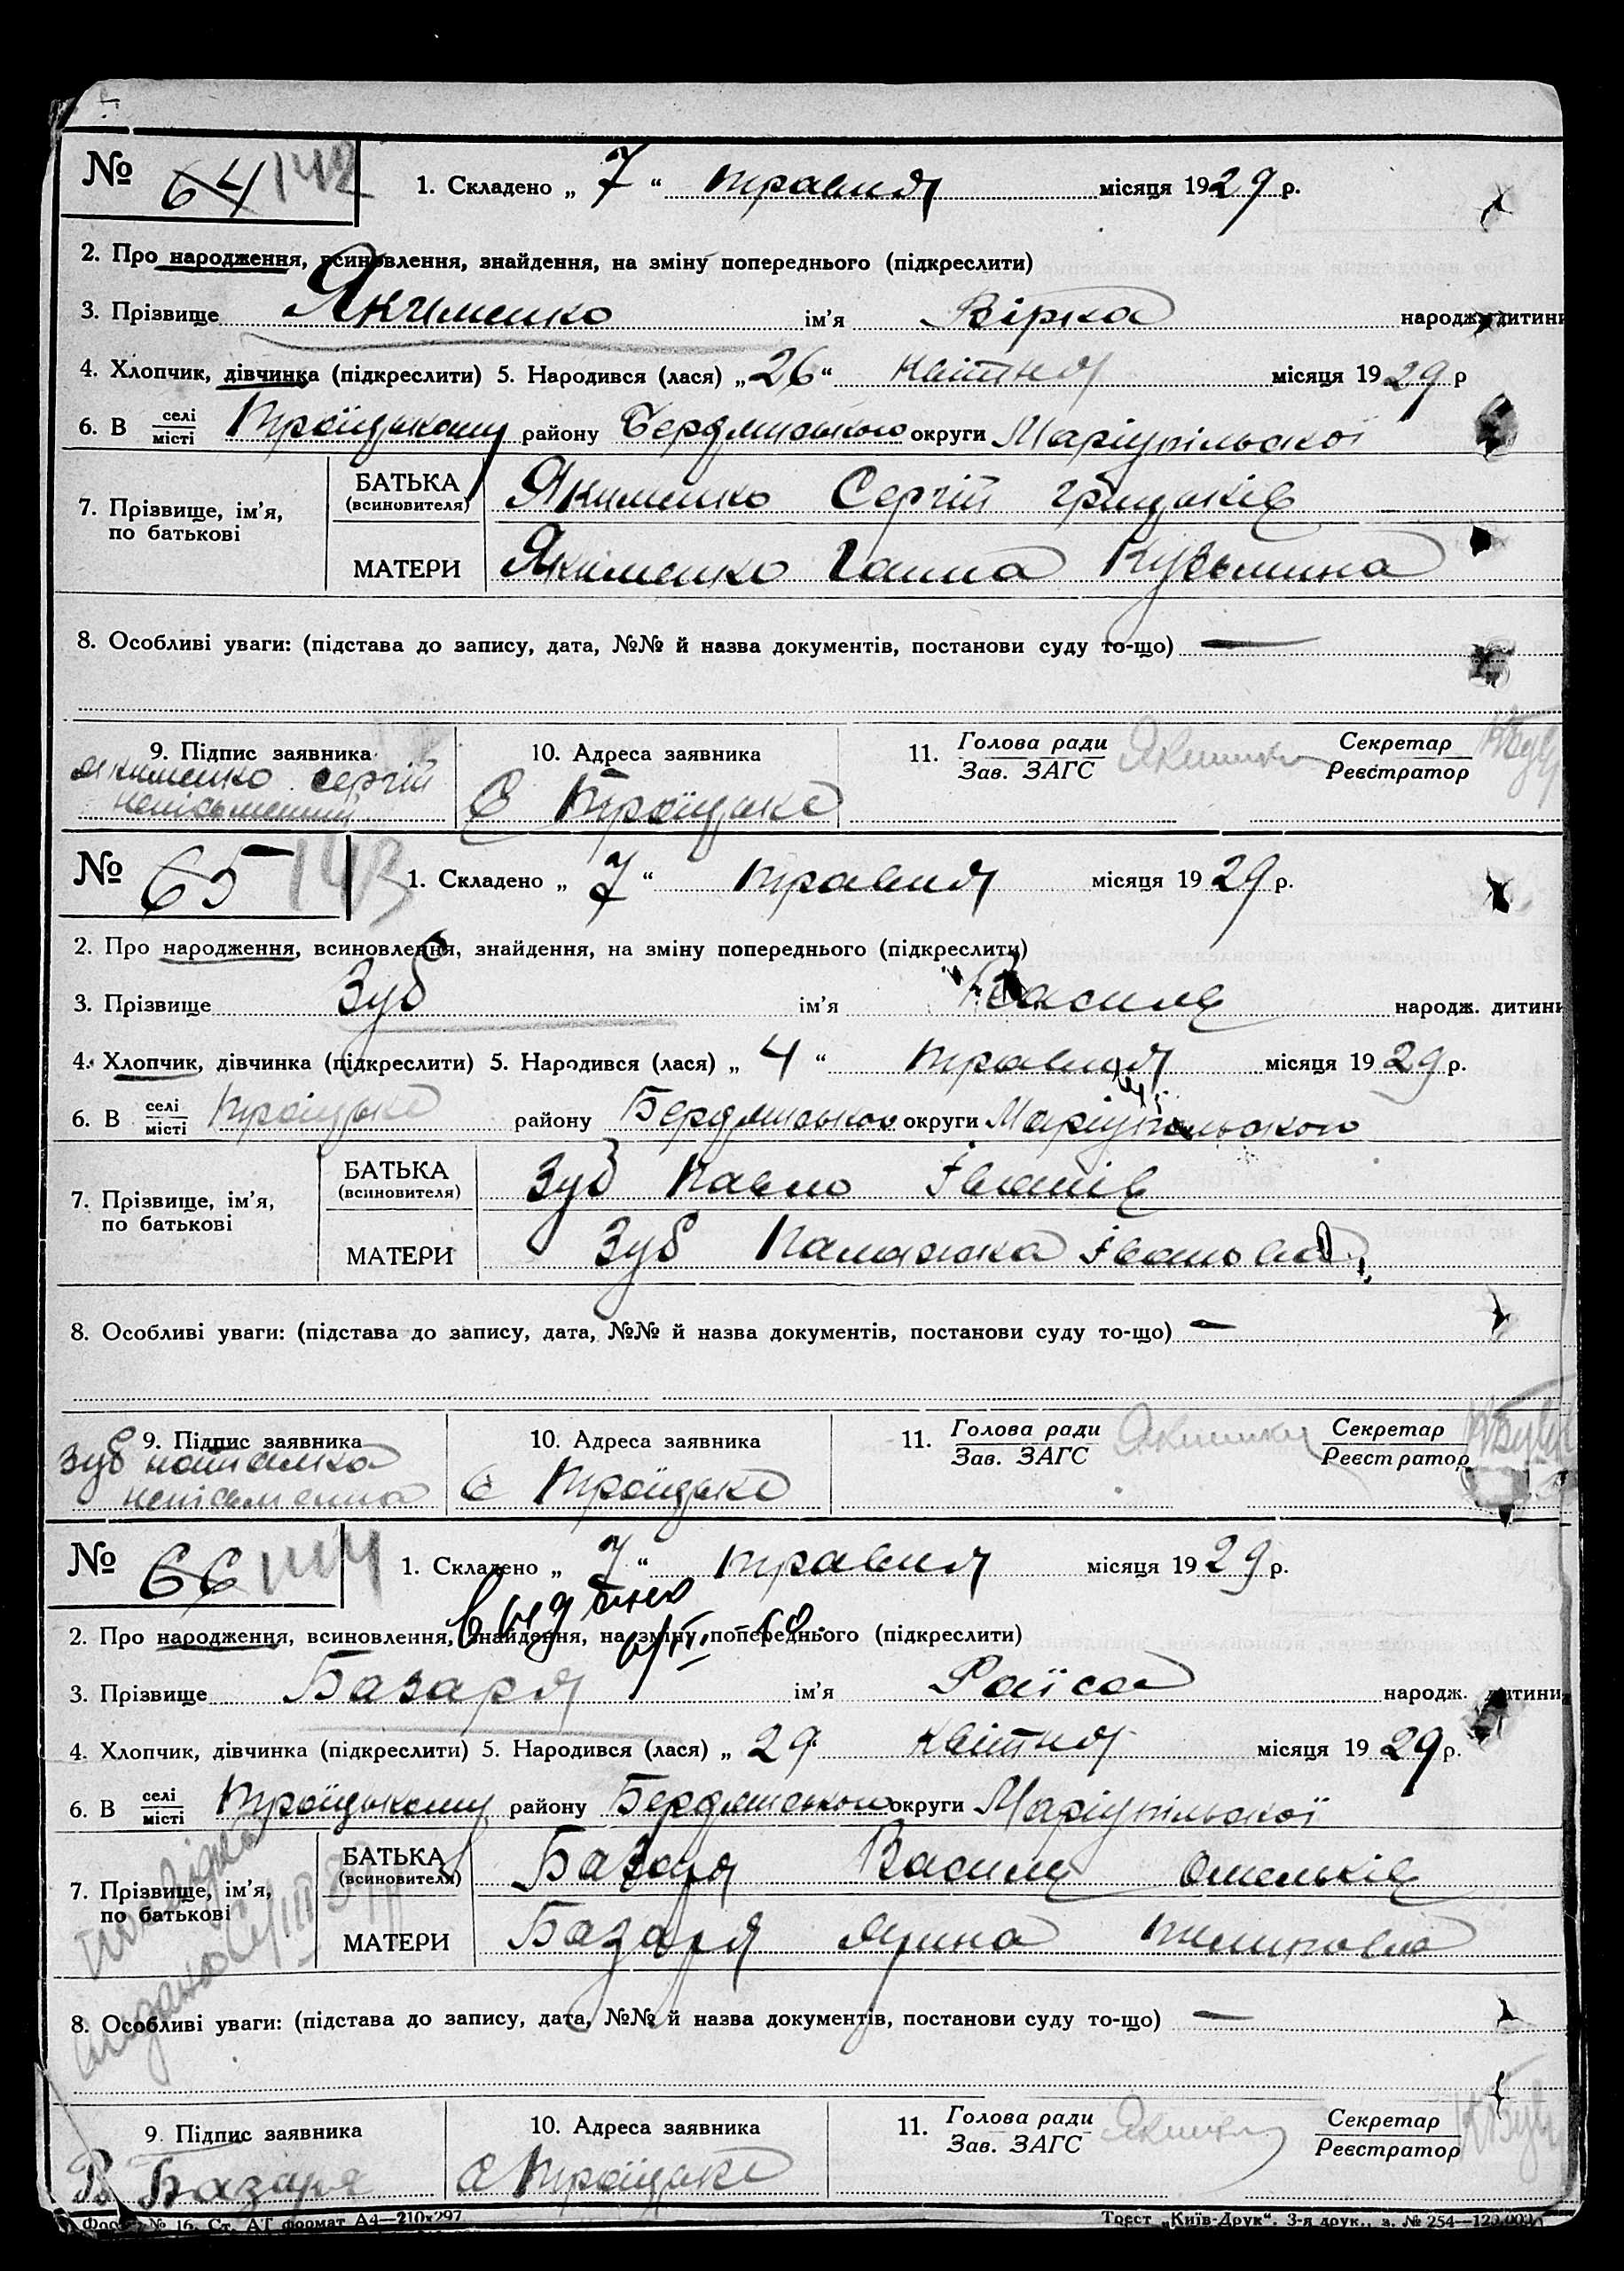 № 64 142 1. Складено „ 7 “ травня місяця 1929 р.
2. Про народження, всиновлення, знайдення, на зміну попереднього (підкреслити)
3. Прізвище Якименко ім’я Вірка народж. дитини
4. Хлопчик, дівчинка (підкреслити) 5. Народився (лася) „ 26 “ квітня місяця 1929 р
6. В селі місті Троїцькому району Бердянського округи Маріупільскої
7. Прізвище, ім’я, по батькові
БАТЬКА (всиновителя) Якименко Сергій Грицьків
МАТЕРИ Якименко Ганна Кузьмина
8. Особливі уваги: (підстава до запису, дата, №№ й назва документів, постанови суду то-що) —
9. Підпис заявника 10. Адреса заявника 11. Голова ради Зав. ЗАГС Секретар Реєстратор
Якименко Сергій
неписьменний С Троїцьке
№ 65 143 1. Складено „ 7 “ травня місяця 1929 р.
2. Про народження, всиновлення, знайдення, на зміну попереднього (підкреслити)
3. Прізвище Зуб ім’я Василь народж. дитини
4. Хлопчик, дівчинка (підкреслити) 5. Народився (лася) „ 4 “ травня місяця 1929 р.
6. В селі місті Троїцьке району Бердянського округи
7. Прізвище, ім’я, по батькові
БАТЬКА (всиновителя) Зуб Павло Іванів
МАТЕРИ Зуб Іванова
8. Особливі уваги: (підстава до запису, дата, №№ й назва документів, постанови суду то-що) —
9. Підпис заявника 10. Адреса заявника 11. Голова ради Зав. ЗАГС Секретар Реєстратор
Зуб
неписьменна С Троїцьке
№ 66 144 1. Складено „ 7 “ травня місяця 1929 р.
2. Про народження, всиновлення, знайдення, на зміну попереднього (підкреслити)
3. Прізвище Базаря ім’я Раїса народж. дитини
4. Хлопчик, дівчинка (підкреслити) 5. Народився (лася) „ 29 квітня місяця 1929 р.
6. В селі місті Троїцькому району Бердянського округи Маріупільської
7. Прізвище, ім’я, по батькові
БАТЬКА (всиновителя) Базаря Василь Омельків
МАТЕРИ Базаря Ярина
8. Особливі уваги: (підстава до запису, дата, №№ й назва документів, постанови суду то-що) —
9. Підпис заявника 10. Адреса заявника 11. Голова ради Зав. ЗАГС Секретар Реєстратор
В Базаря С Троїцьке
Форма № 16. Ст. АТ формат А4—210х297 Трест „Київ-Друк“. 3-я друк., з. № 254—120.000